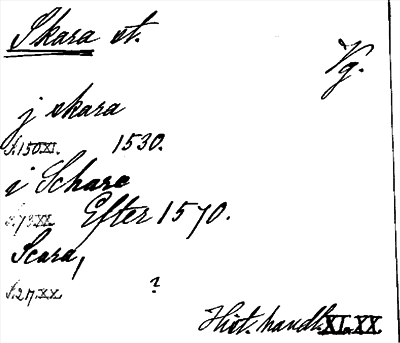 Skara st.
Vg.
j skara
s. 150 XI. 1530.
i Schare
Efter 1570.
Scara,
s. 27 XX. ?
Hist. handl. XI. XX.